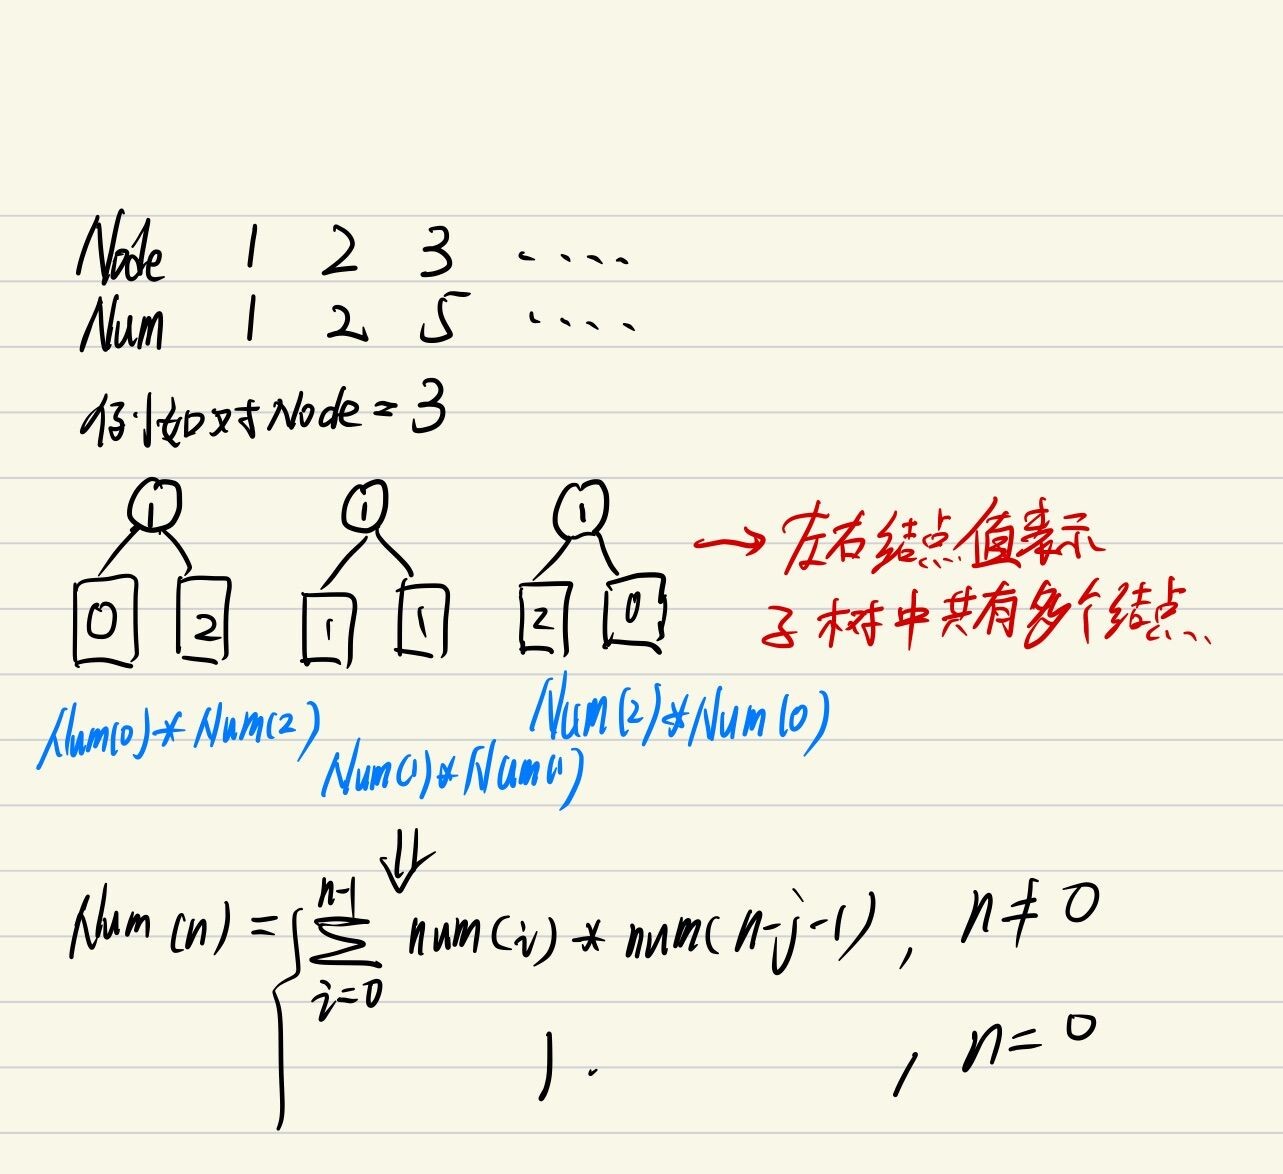 Node 1 2 3 ....
Num 1 2 5 ....
例如对Node = 3
1 1 1
0 2 1 1 2 0
→ 左右结点值表示
子树中共有多个结点.
Num(0)*Num(2)
Num(1)*Num(1)
Num(2)*Num(0)
⇓
Num(n) = { n-1 ∑ i=0 num(i) * num(n-j-1), n≠0
1. , n=0